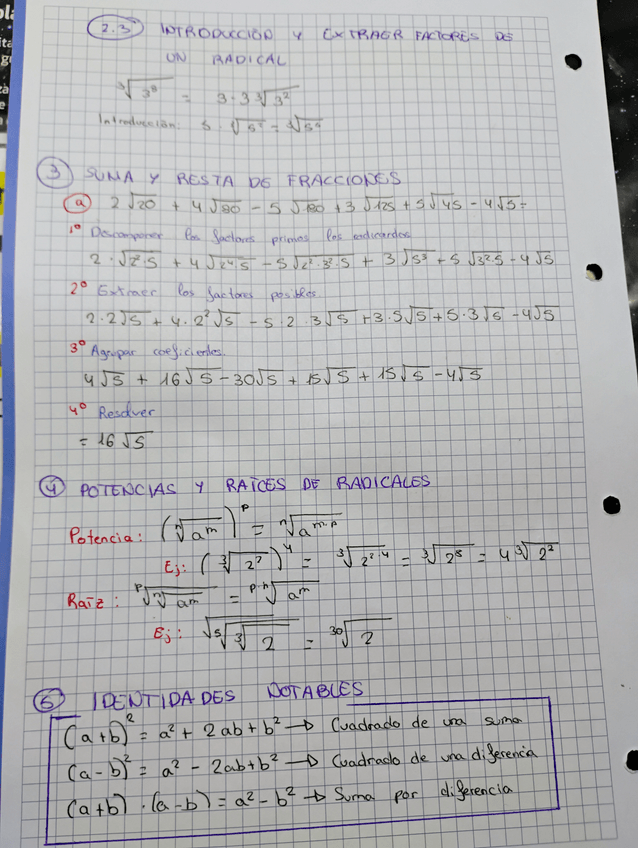 2.3 INTRODUCCIÓN Y EXTRAER FACTORES DE
UN RADICAL
∛3⁸ = 3·3∛3²
Introducción: 5·
③ SUMA Y RESTA DE FRACCIONES
ⓐ 2√20 + 4√80 - 5√180 + 3√125 + 5√45 - 4√5 =
1º Descomponer los factores primos los radicandos
2·√2²·5 + 4√2⁴·5 - 5√2²·3²·5 + 3√5³ + 5√3²·5 - 4√5
2º Extraer los factores posibles
2·2√5 + 4·2²√5 - 5·2·3√5 + 3·5√5 + 5·3√5 - 4√5
3º Agrupar coeficientes.
4√5 + 16√5 - 30√5 + 15√5 + 15√5 - 4√5
4º Resolver
= 16√5
④ POTENCIAS Y RAÍCES DE RADICALES
Potencia: (ⁿ√aᵐ)ᵖ = ⁿ√aᵐ·ᵖ
Ej: (∛2²)⁴ = ∛2²·⁴ = ∛2⁸ = 4∛2²
Raíz: ᵖ√ⁿ√aᵐ = ᵖ·ⁿ√aᵐ
Ej: √⁵√∛2 = ³⁰√2
⑥ IDENTIDADES NOTABLES
(a+b)² = a² + 2ab + b² → Cuadrado de una suma
(a-b)² = a² - 2ab + b² → Cuadrado de una diferencia
(a+b)·(a-b) = a² - b² → Suma por diferencia